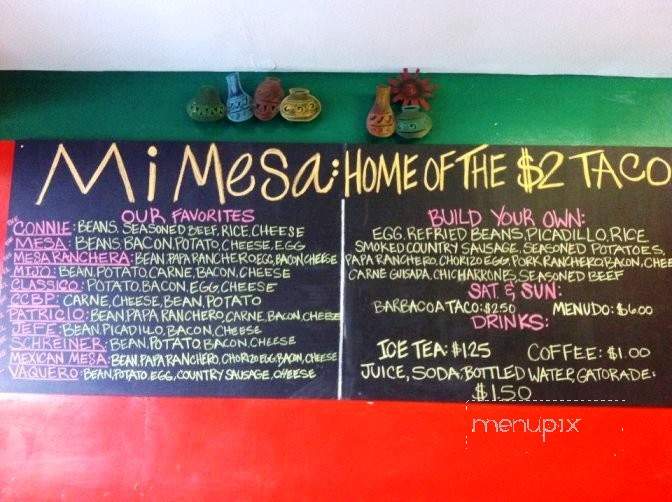 Mi Mesa: HOME OF THE $2 TACO
OUR FAVORITES
CONNIE: BEANS, SEASONED BEEF, RICE, CHEESE
MESA: BEANS BACON, POTATO, CHEESE, EGG
MESA RANCHERA: BEAN, PAPA RANCHERO EGG, BACON, CHEESE
MIJO: BEAN, POTATO, CARNE, BACON, CHEESE
CLASSICO: POTATO, BACON, EGG, CHEESE
CCBP: CARNE, CHEESE, BEAN, POTATO
PATRICIO: BEAN, PAPA RANCHERO, CARNE, BACON, CHEESE
JEFE: BEAN, PICADILLO, BACON, CHEESE
SCHREINER: BEAN, POTATO BACON, CHEESE
MEXICAN MESA: BEAN, PAPA RANCHERO, CHORIZO EGG, BACON, CHEESE
VAQUERO: BEAN, POTATO, EGG, COUNTRY SAUSAGE, CHEESE
BUILD YOUR OWN:
EGG, REFRIED BEANS, PICADILLO, RICE
SMOKED COUNTRY SAUSAGE, SEASONED POTATOES
PAPA RANCHERO, CHORIZO EGG, PORK RANCHERO, BACON, CHEE
CARNE GUISADA, CHICHARRONES, SEASONED BEEF
SAT. & SUN:
BARBACOA TACO: $2.50 MENUDO: $6.00
DRINKS:
ICE TEA: $1.25 COFFEE: $1.00
JUICE, SODA, BOTTLED WATER, GATORADE:
$1.50
menupix